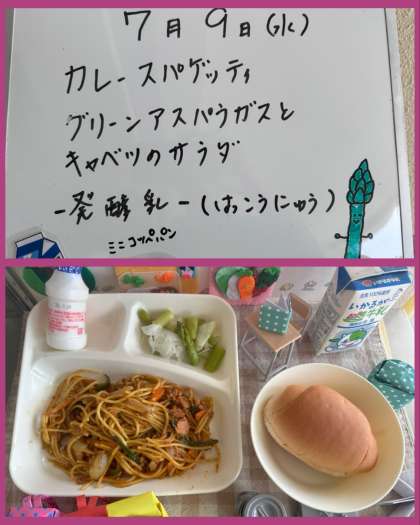 7月9日(水)
カレースパゲッティ
グリーンアスパラガスと
キャベツのサラダ
-発酵乳-(はっこうにゅう)
ミニコッペパン